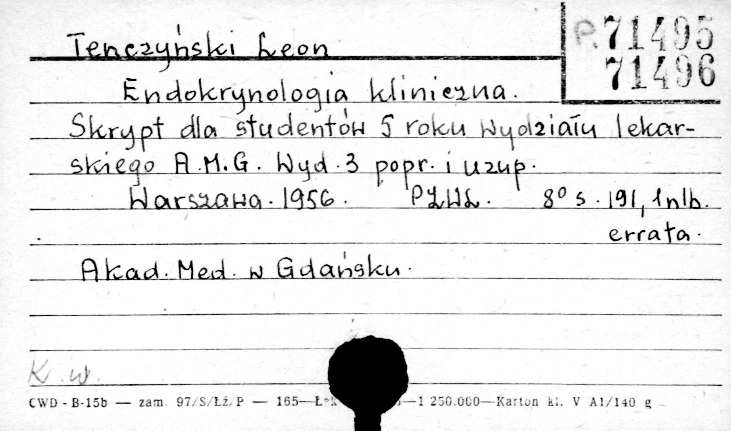 Tenczyński Leon
P. 71495
71496
Endokrynologia kliniczna.
Skrypt dla studentów 5 roku Wydziału lekar-
skiego A.M.G. Wyd. 3 popr. i uzup.
Warszawa. 1956. PZWL. 8º s. 191, 1 nlb.
errata.
Akad. Med. w Gdańsku.
K. w.
CWD - B-15b — zam. 97/S/Łź/P — 165— —1 250.000—Karton kl. V A1/140 g